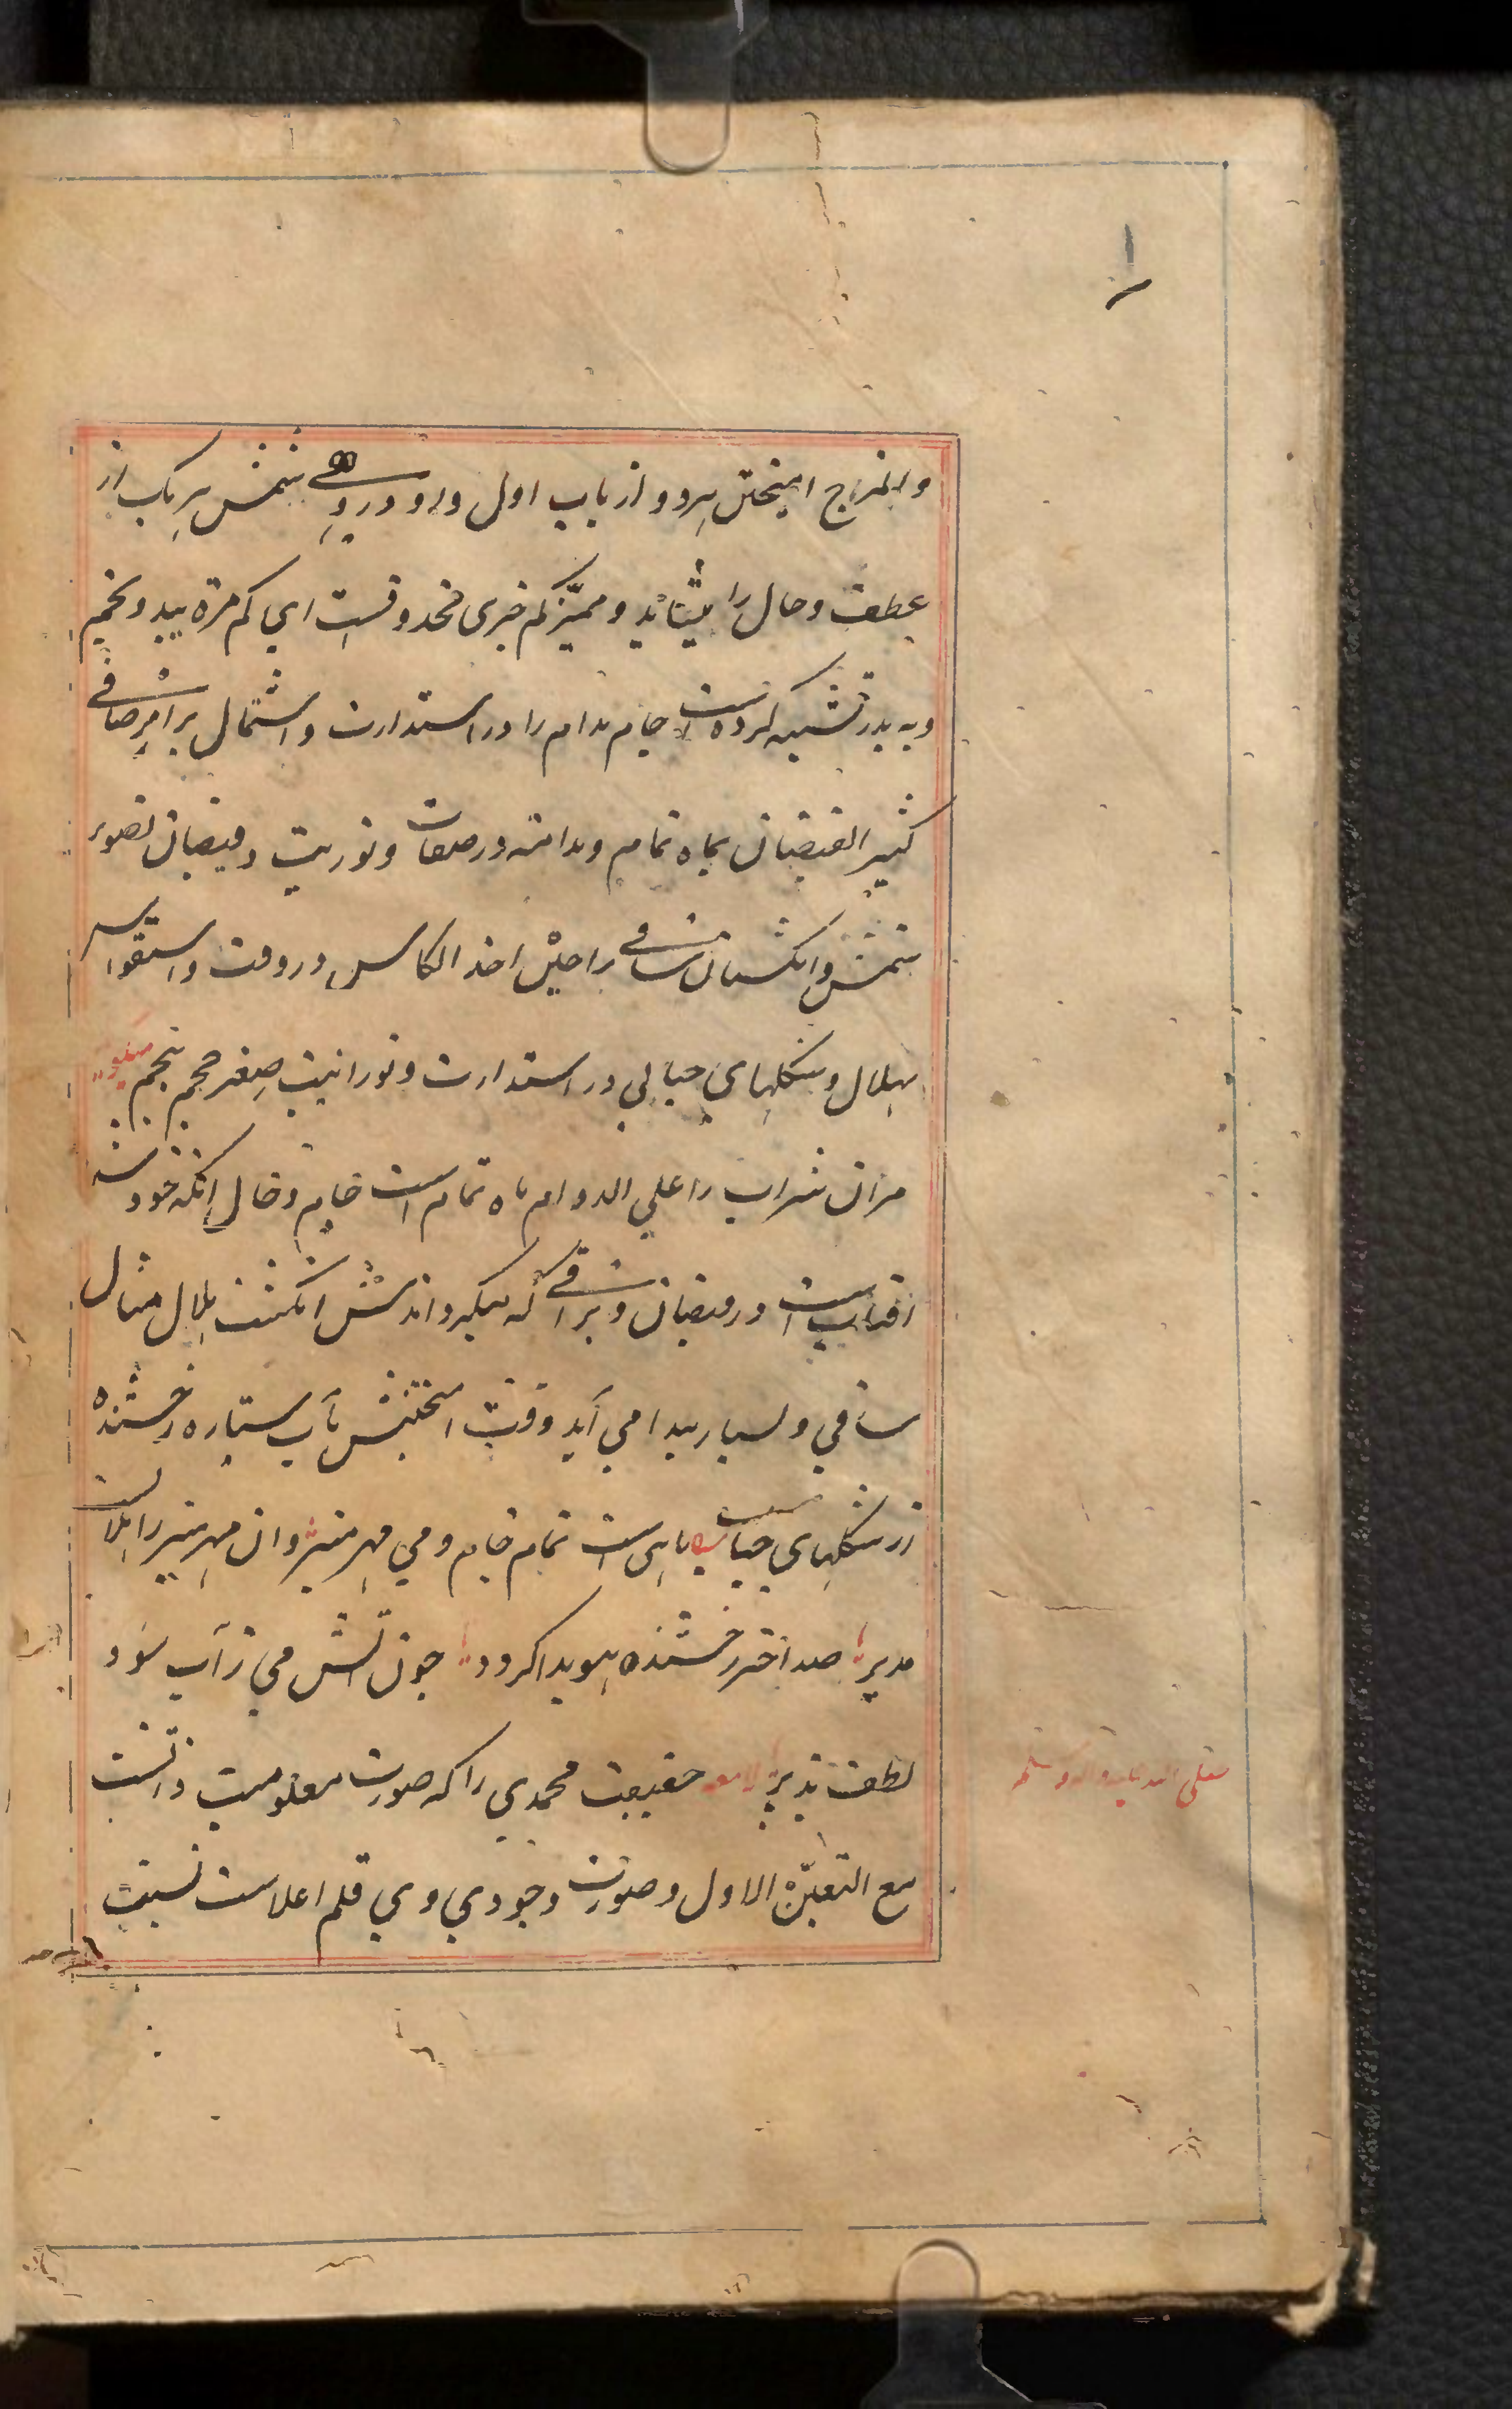 والمزاج امیختن هردو از باب اول واو در وهی شمس هریک از
عطف وحال را میشاید و ممیّز کم خبری محذوفست ای کم مرة یبدو نجم
و به بدر تشبیه کرده است جام مدام را در استدارت و اشتمال بر امر صافی
کثیر الفیضان بماه تمام و مدامه در صفات ونوریت و فیضان بصور
شمس و انگشتان ساقی را حین اخذ الکاس در دقت و استقواس
بهلال و شکلهای حبابی در استدارت و نورانیت و صغر حجم بنجم میگوید
مران شراب را علی الدوام ماه تمام است جام و حال آنکه خودش
افتابیست در فیضان و براقی که میگرداندش انگشت هلال مثال
ساقی و بسیار پیدا می آید وقت امیختنش بآب ستاره رخشنده
از شکلهای حباب ماهی است تمام جام و می مهر منیر وان مهر منیر را هلالست
مدیر صد اختر رخشنده هویدا گردد چون آتش می ز آب شود
لطف پذیر لامعه حقیقت محمدی را که صورت معلومیت ذاتست
مع التعیّن الاول و صورت وجودی وی قلم اعلاست نسبت
صلی الله علیه واله وسلم